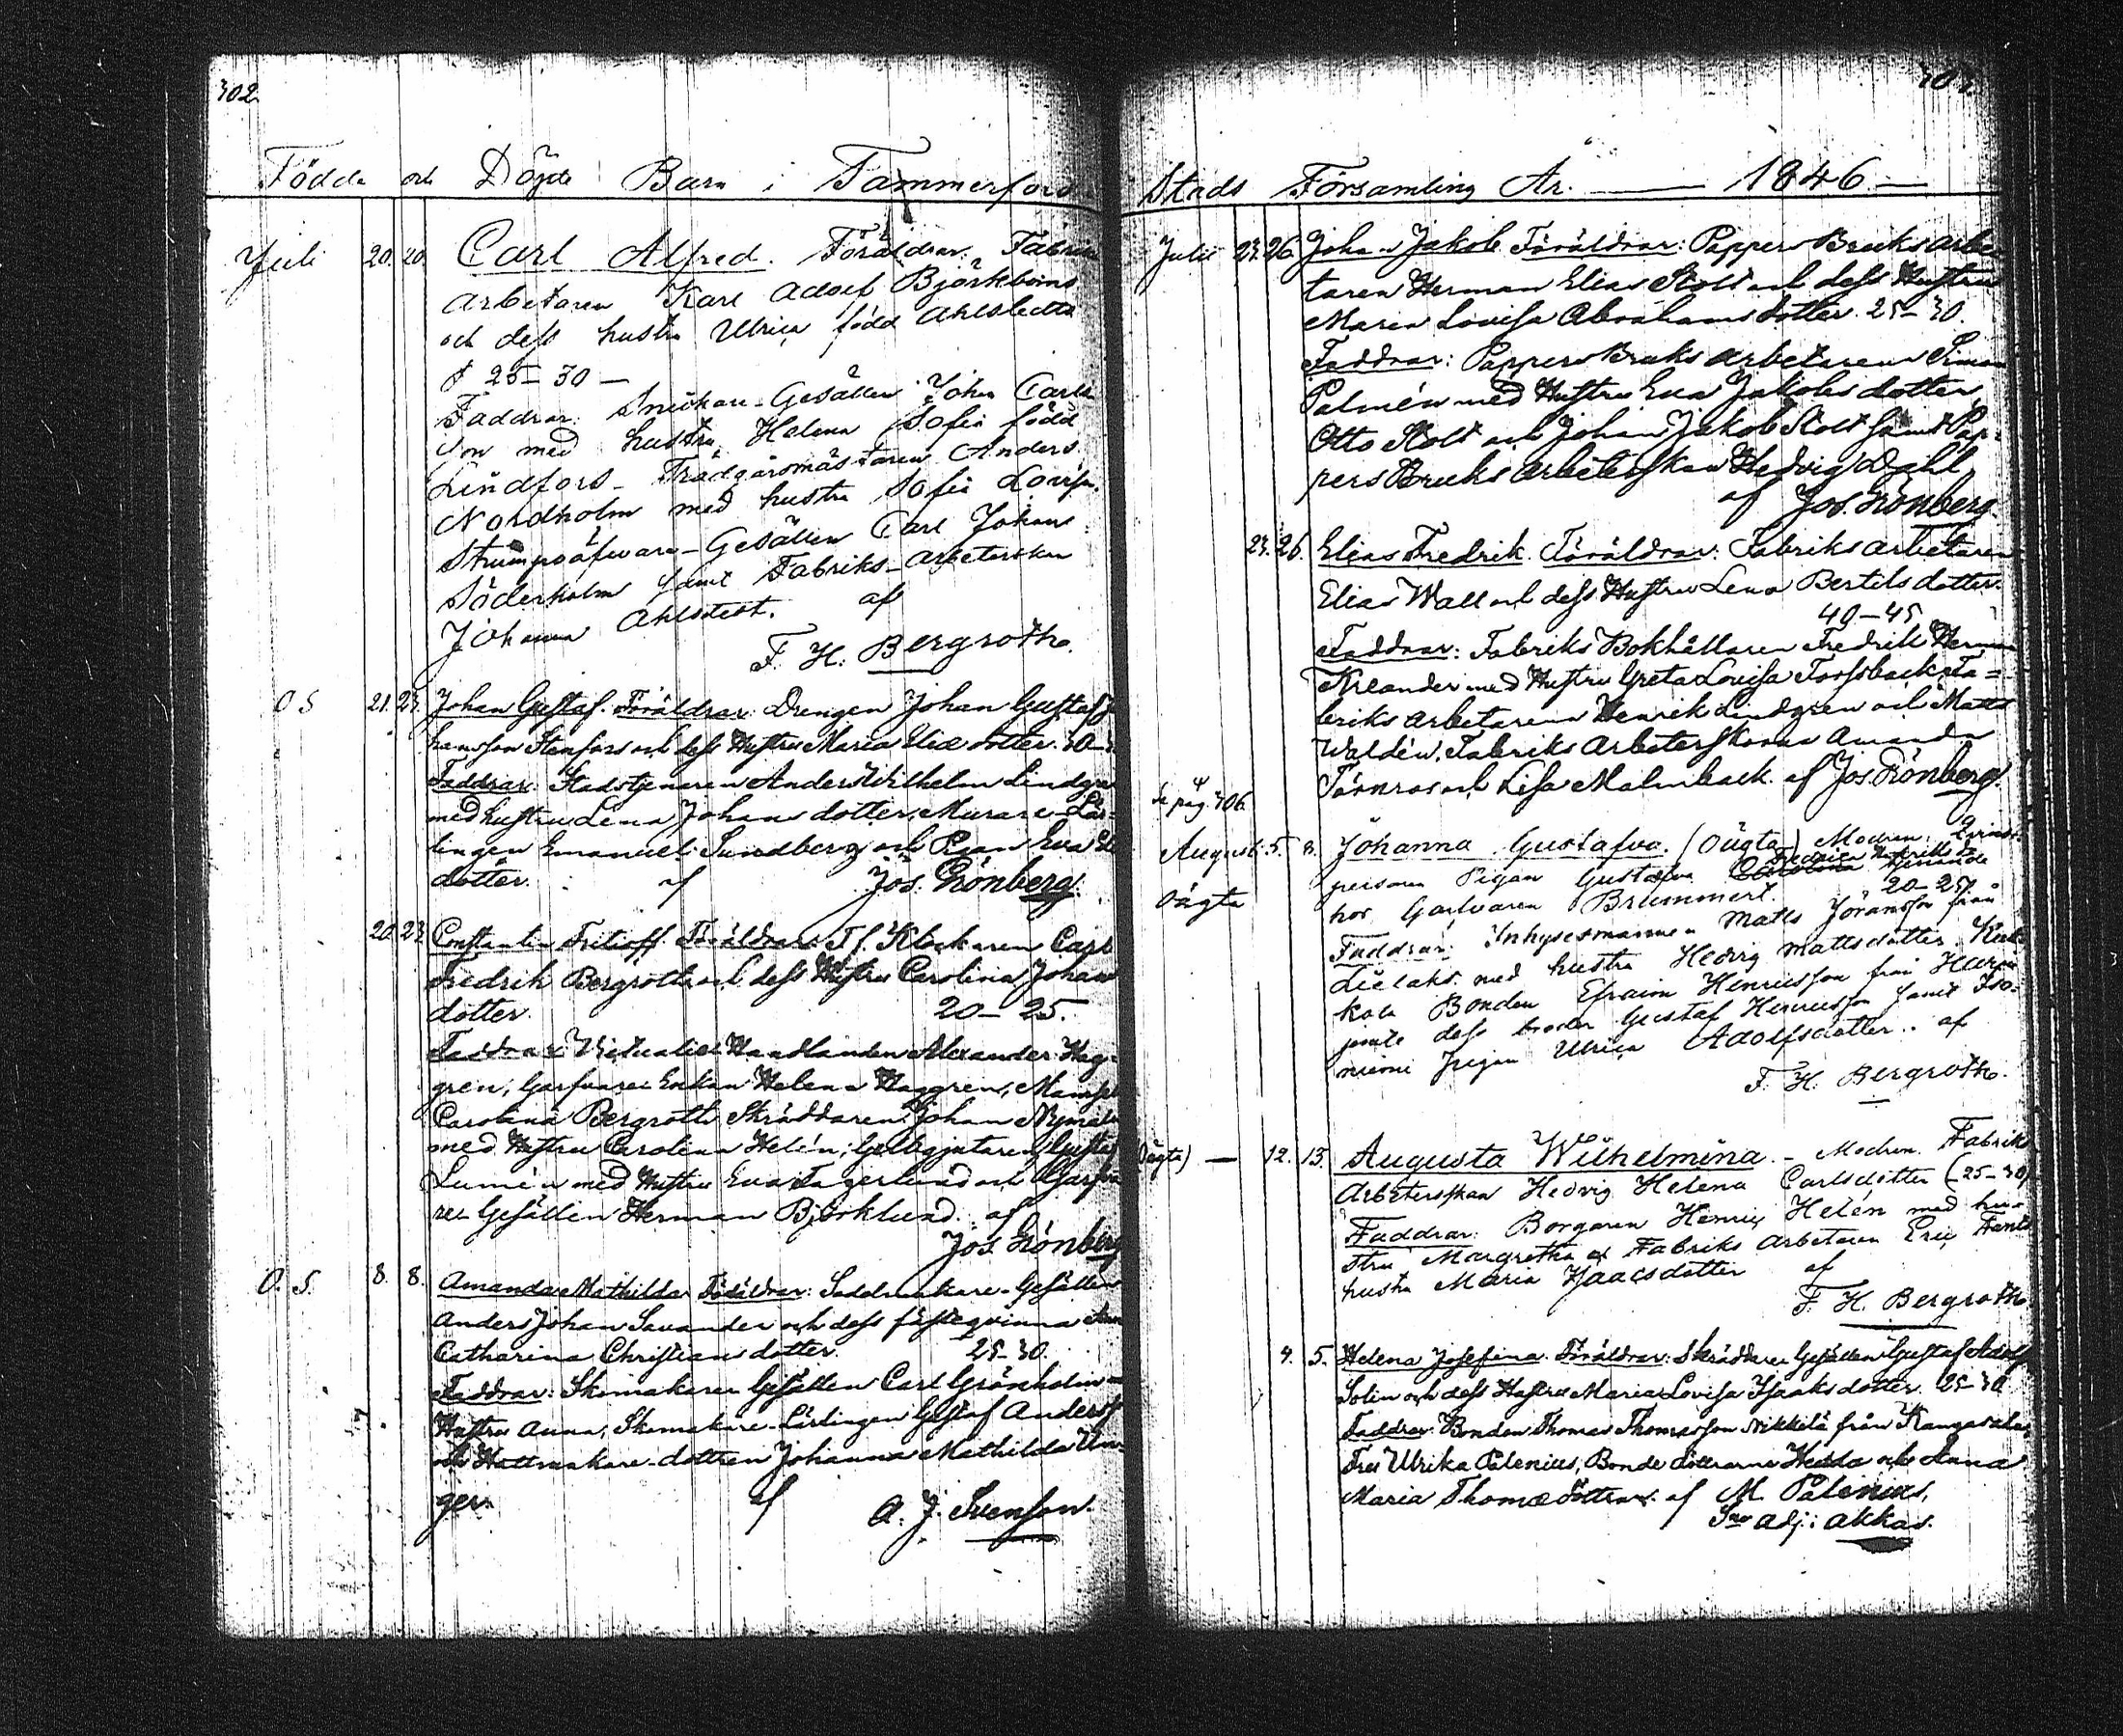 302
Födde och Döpte Barn i Tammerfors
Juli 20. 20. Carl Alfred. Föräldrar: Fabriks
arbetaren Karl Adolf Björkbom
och dess hustru Ulrica född Ahlstedt
25–30 –
Faddrar: Snickare-Gesällen Johan Carls
son med hustru Helena Sofia född
Lindfors – Trädgårsmästaren Anders
Nordholm med hustru Sofia Lovisa.
Strumpväfvare-Gesällen Carl Johan
Söderholm samt Fabriks-arbeterskan
Johanna Ahlstedt. af
F. H. Bergroth.
O S 21. 23. Johan Gustaf. Föräldrar: Drengen Johan Gustaf Jo
hansson Stenfors och dess Hustru Maria Eliæ dotter. 30–
Faddrar: Stadstjenaren Anders Wilhelm Lindgre
med hustru Lena Johans dotter, Murare-Lär-
lingen Emanuel Sundberg och Pigan Eva
dotter. af Jos. Grönberg.
20. 23. Constantin Fritioff. Föräldrar: T. f. Klockaren Carl
Fredrik Bergroth och dess Hustru Carolina Johans
dotter. 20–25.
Faddrar: Victualie Handlanden Alexander Hag-
gren, Garfvare Enkan Helena Haggren, Mamsel
Carolina Bergroth, Skräddaren Johan Nyman
med Hustru Carolina Helén; Gelbgjutaren Gustaf
Lumén med Hustru Eva Fagerlund och Garfva
re-Gesällen Herman Björklund. af
Jos. Grönberg
O. S. 8. 8. Amanda Mathilda Föräldrar: Sadelmakare-Gesällen
Anders Johan Savander och dess fästeqvinna Ann
Catharina Christians dotter. 25–30.
Faddrar: Skomakare Gesällen Carl Grönholm
Hustru Anna, Skomakare-Lärlingen Gustaf Anderss
och Hattmakare-dottren Johanna Mathilda Un-
ger. af A. J. Svenson.
Stads Församling År. — 1846 —
Julii 23. 26. Johan Jakob. Föräldrar: Pappers Bruks arbe-
taren Herman Elias Stolt och dess Hustru
Maria Lovisa Abrahams dotter. 25–30.
Faddrar: Pappers Bruks arbetaren Simon
Palmén med Hustru Eva Jakobs dotter,
Otto Stolt och Johan Jakob Stolt samt Pap-
pers Bruks arbeterskan Hedvig Dahl,
af Jos. Grönberg.
23. 26. Elias Fredrik. Föräldrar: Fabriks arbetaren
Elias Wall och dess Hustru Lena Bertils dotter.
40–45
Faddrar: Fabriks Bokhållaren Fredrik Herman
med Hustru Greta Lovisa Forssback, Fa-
briks arbetarena Henrik Lindgren och Matts
Waldén, Fabriks Arbeterskorna Amanda
Törnros och Lisa Malmback. af Jos. Grönberg.
Se pag. 306.
August. 5. 8. Johanna Gustafva. (Oägta) Modren: Qvinns-
Oägta
personen Pigan Gustafva Fredrica Henriksd.
hos Garfvaren Brummert. 20–25
Faddrar: Inhysesmannen Matts Jöransson från
med hustru Hedvig Mattsdotter.
Bonden Efraim Henricsson från
jemte dess broder Gustaf Henricsson samt
niemi pigan Ulrica Adolfsdotter. af
F. H. Bergroth.
Oägta) — 12. 13. Augusta Wilhelmina. – Modren. Fabriks
Arbeterskan Hedvig Helena Carlsdotter (25–30)
Faddrar: Borgaren Henric Helén med hu-
stru Margretha & Fabriks arbetaren Eric
hustru Maria Isaacsdotter af
F. H. Bergroth.
4. 5. Helena Josefina. Föräldrar: Skräddare Gesällen Gustaf Adolf
Solin och dess Hustru Maria Lovisa Isaaks dotter. 25–30
Faddrar: Bonden Thomas Thomasson Nikkilä från Kangasala,
Fru Ulrika Palenius, Bonde döttrarne Hedda och Anna
Maria Thomæ döttrar. af M. Palenius,
adj: akkas.